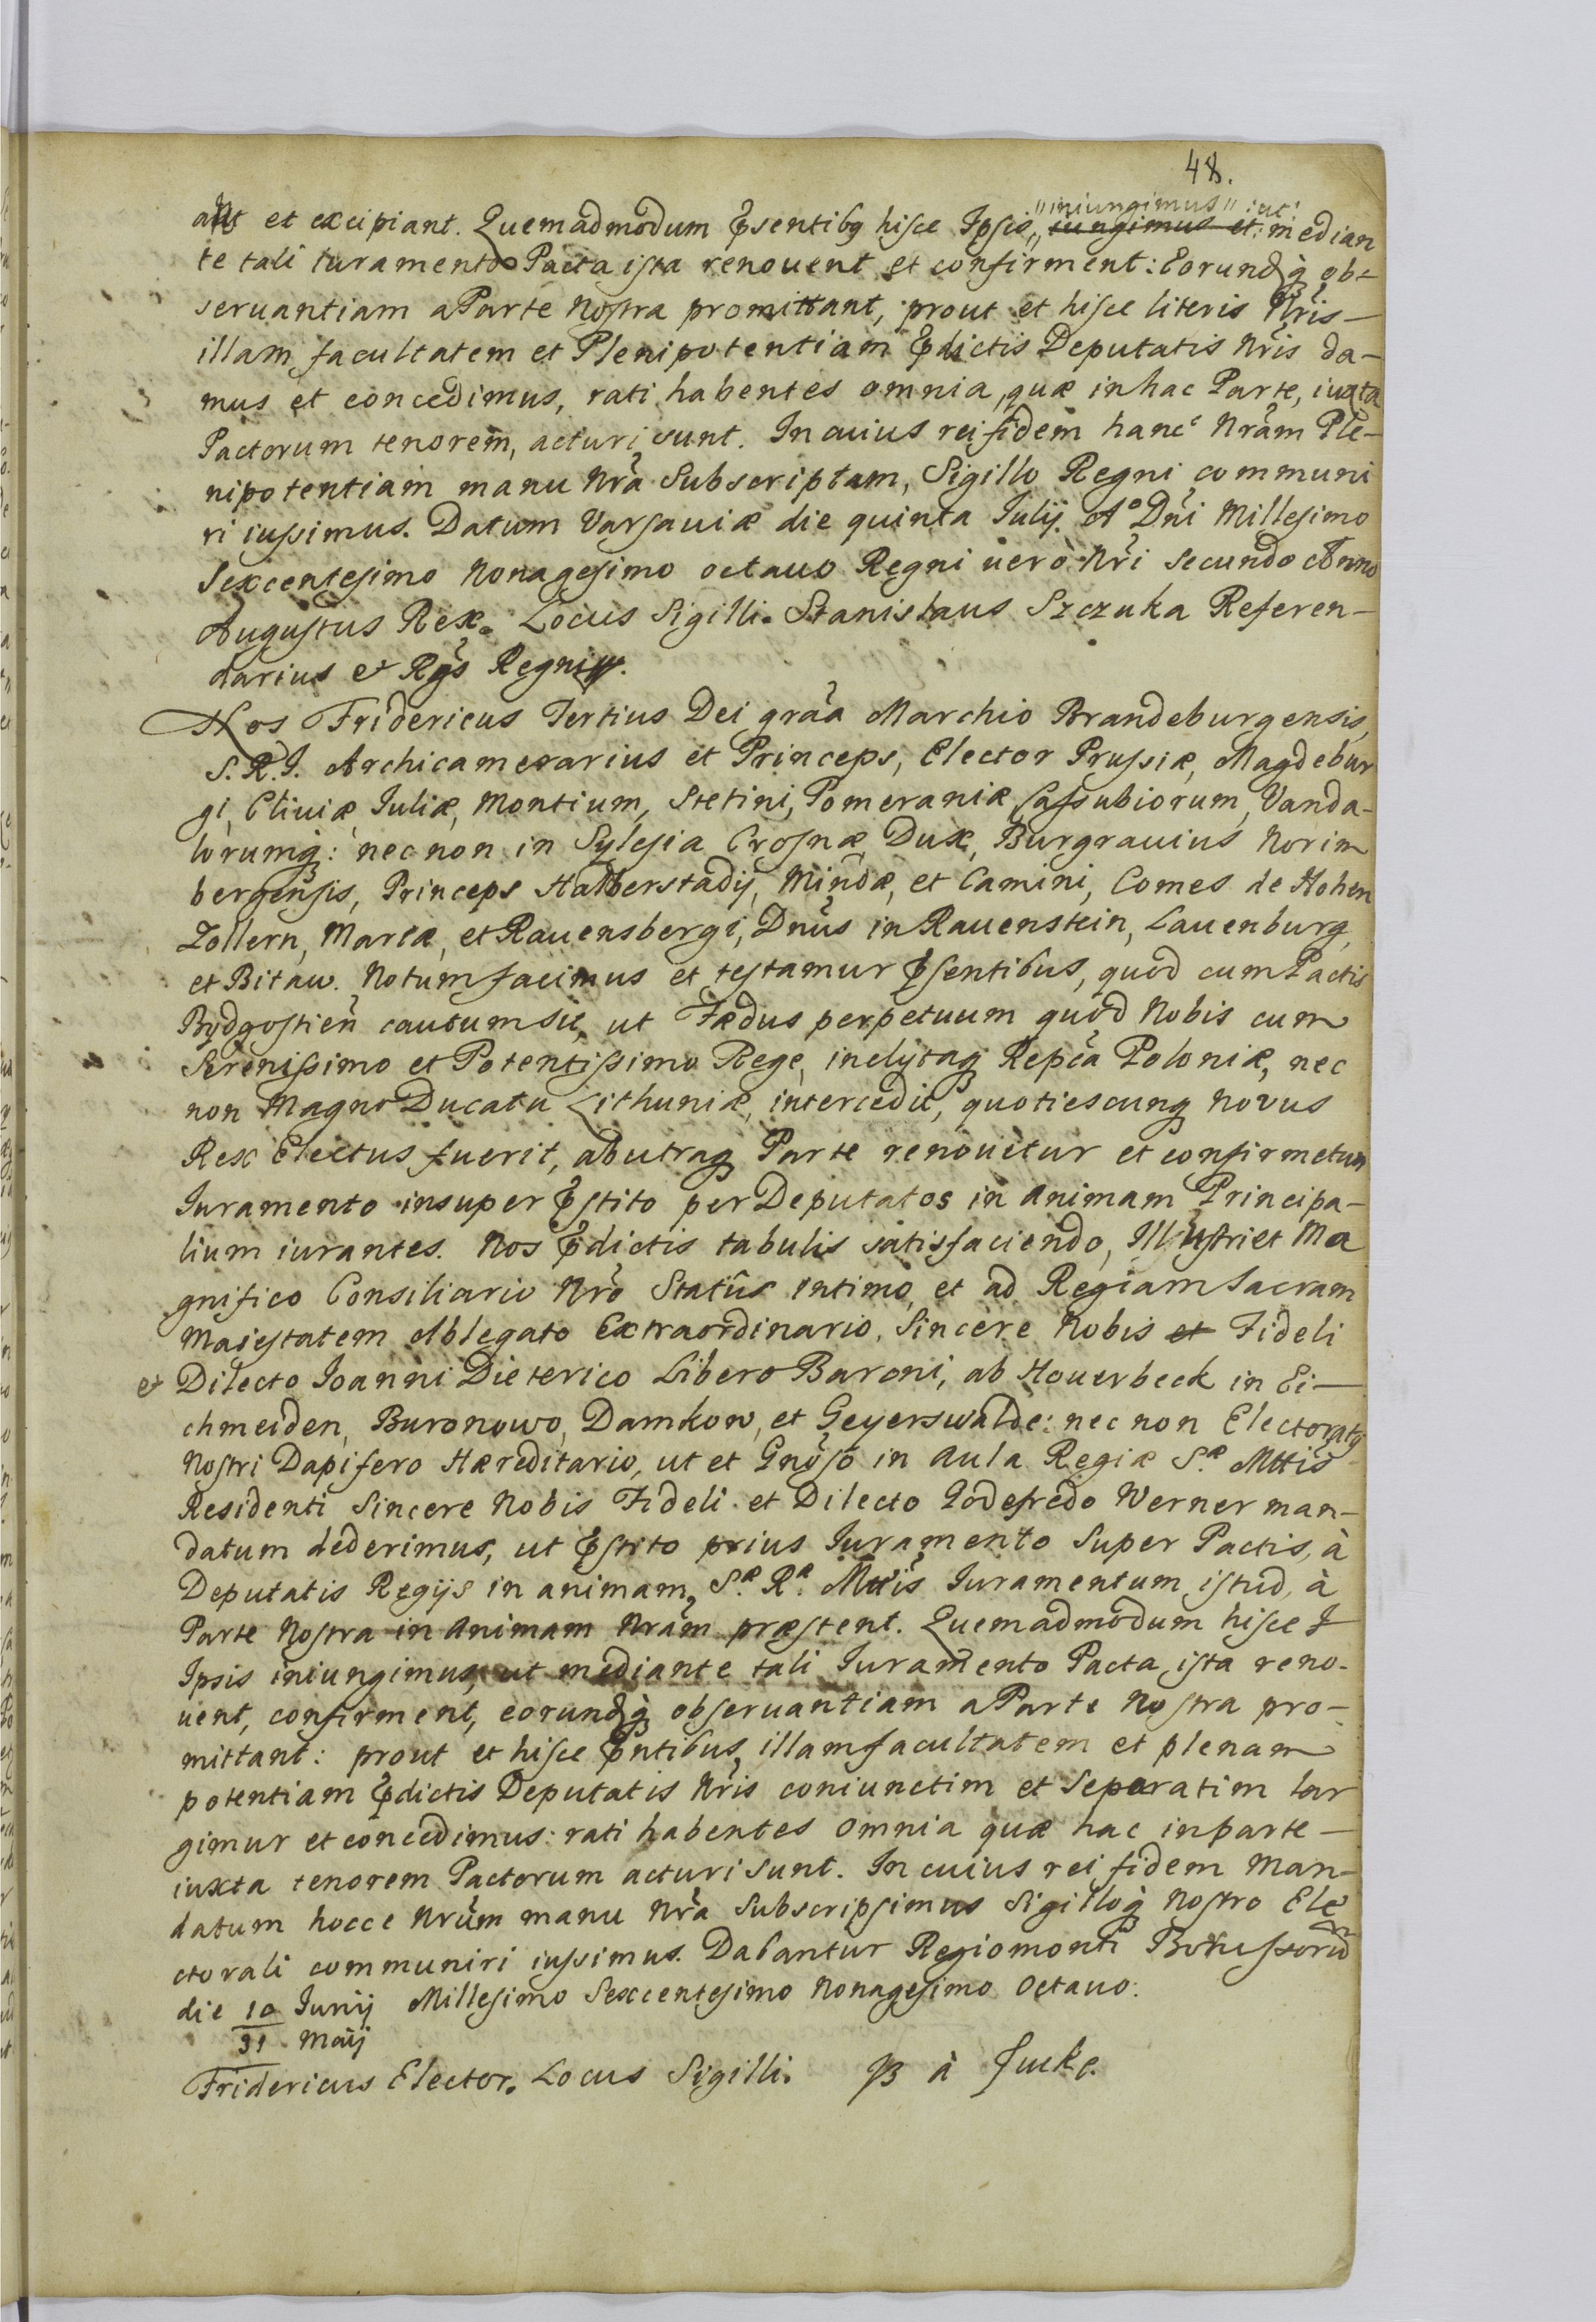 48.
"iniungimus" :ut:
aūt et excipiant. Quemadmodum p̄sentibꝫ hisce Ipsis,, iungimus et: median
te tali iuramento Pacta ista renouent et confirment: Eorundꝫq̀ꝫ ob-
seruantiam a Parte Nostra promittant, prout et hisce literis Nr̃is-
illam facultatem et Plenipotentiam p̄dictis Deputatis Nr̃is da-
mus et concedimus, rati habentes omnia, quæ in hac Parte, iuxta
Pactorum tenorem, acturi sunt. In cuius rei fidem hanc Nr̃am Ple-
nipotentiam manu Nr̃a Subscriptam, Sigillo Regni communi
ri iussimus. Datum Varsauiæ die quinta Iulij. Aº Dñi Millesimo
Sexcentesimo Nonagesimo octauo Regni uerò Nr̃i secundo Anno
Augustus Rex. Locus Sigilli. Stanislaus Szczuka Referen-
darius et Rg̃s Regni.
Nos Fridericus Tertius Dei grãa Marchio Brandeburgensis,
S. R. I. Archicamerarius et Princeps, Elector Prussiæ, Magdebur
gi, Cliuiæ, Iuliæ, Montium, Stetini, Pomeraniæ Cassubiorum, Vanda-
lorumq̀ꝫ: nec non in Sylesia Crosnæ Dux, Burgrauius Norim
bergensis, Princeps Halberstadij, Mindæ, et Camini, Comes de Hohen
Zollern, Marcæ, et Rauensbergi, Dnũs in Rauenstein, Lauenburg,
et Bitaw. Notum facimus et testamur p̄sentibus, quod cum Pactis
Bydgostien̄ cautum sit, ut Fædus perpetuum quod Nobis cum
Serenissimo et Potentissimo Rege, inclytaqꝫ Repc̃a Poloniæ, nec
non Magno Ducatu Lithuniæ, intercedit, quotiescunqꝫ Novus
Rex Electus fuerit, ab utraqꝫ Parte renouetur et confirmetur
Iuramento insuper p̄stito per Deputatos in animam Principa-
lium iurantes. Nos p̄dictis tabulis satisfaciendo, Illustri et Ma
gnifico Consiliario Nr̃o Statûs intimo, et ad Regiam Sacram
Maiestatem Ablegato Extraordinario, Sincere Nobis et Fideli
et Dilecto Ioanni Dieterico Libero Baroni, ab Houerbeck in Ei-
chmeiden, Buronowo, Damkow, et Geyerswalde: nec non Electoratꝰ
Nostri Dapifero Hæreditario, ut et Gnõso in Aula Regiæ S.æ Mttis
Residenti Sincere Nobis Fideli et Dilecto Godefredo Werner man-
datum dederimus, ut p̄stito prius Iuramento Super Pactis, à
Deputatis Regijs in animam, S.æ R.æ Mttis Iuramentum istud, à
Parte Nostra in Animam Nrãm præstent. Quemadmodum hisce I
Ipsis iniungimus, ut mediante tali Iuramento Pacta ista reno-
uent, confirment, eorundꝫq̀ꝫ obseruantiam a Parte Nostra pro-
mittant: prout et hisce p̄ntibus, illam facultatem et plenam
potentiam p̄dictis Deputatis Nr̃is coniunctim et Separatim lar
gimur et concedimus: rati habentes omnia quæ hac in parte-
iuxta tenorem Pactorum acturi sunt. In cuius rei fidem Man-
datum hocce Nrũm manu Nr̃a Subscripsimus Sigilloq̀ꝫ Nostro Ele
ctorali communiri iussimus. Dabantur Regiomonti Borussorũ
die 10/31 Iunij/Maij Millesimo Sexcentesimo Nonagesimo Octauo:
Fridericus Elector. Locus Sigilli. P à Fuchs.